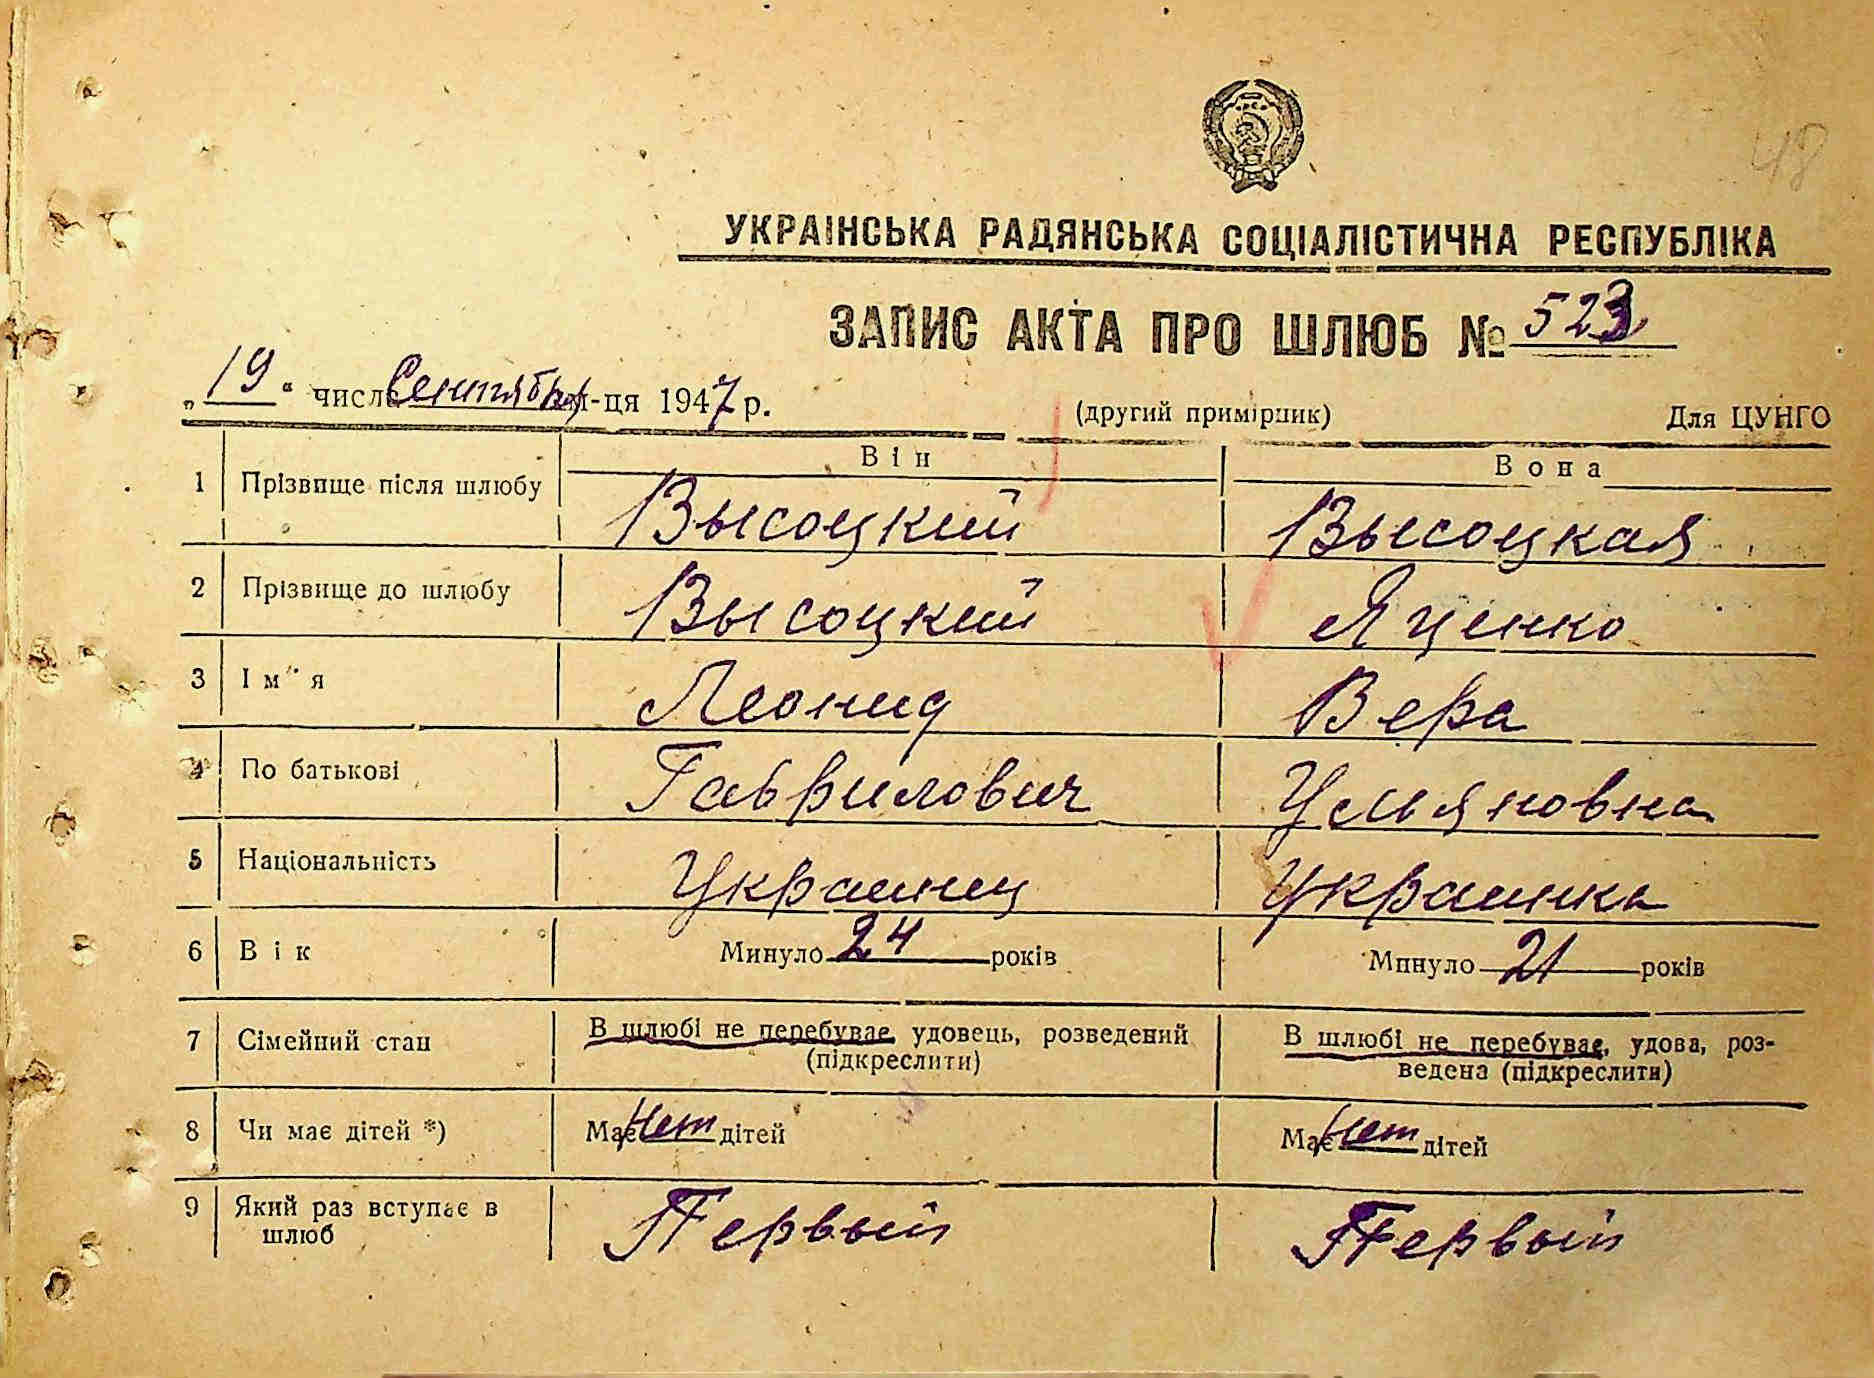 48
УКРАЇНСЬКА РАДЯНСЬКА СОЦІАЛІСТИЧНА РЕСПУБЛІКА
ЗАПИС АКТА ПРО ШЛЮБ № 523
„19" числа Сентября м-ця 1947 р. (другий примірник) Для ЦУНГО
Він Вона
1 Прізвище після шлюбу Высоцкий Высоцкая
2 Прізвище до шлюбу Высоцкий Яценко
3 Ім'я Леонид Вера
4 По батькові Гаврилович Ульяновна
5 Національність Украинец Украинка
6 Вік Минуло 24 років Минуло 21 років
7 Сімейний стан В шлюбі не перебуває, удовець, розведений В шлюбі не перебуває, удова, роз-
(підкреслити) ведена (підкреслити)
8 Чи має дітей *) Має Нет дітей Має Нет дітей
9 Який раз вступає в Первый Первый
шлюб